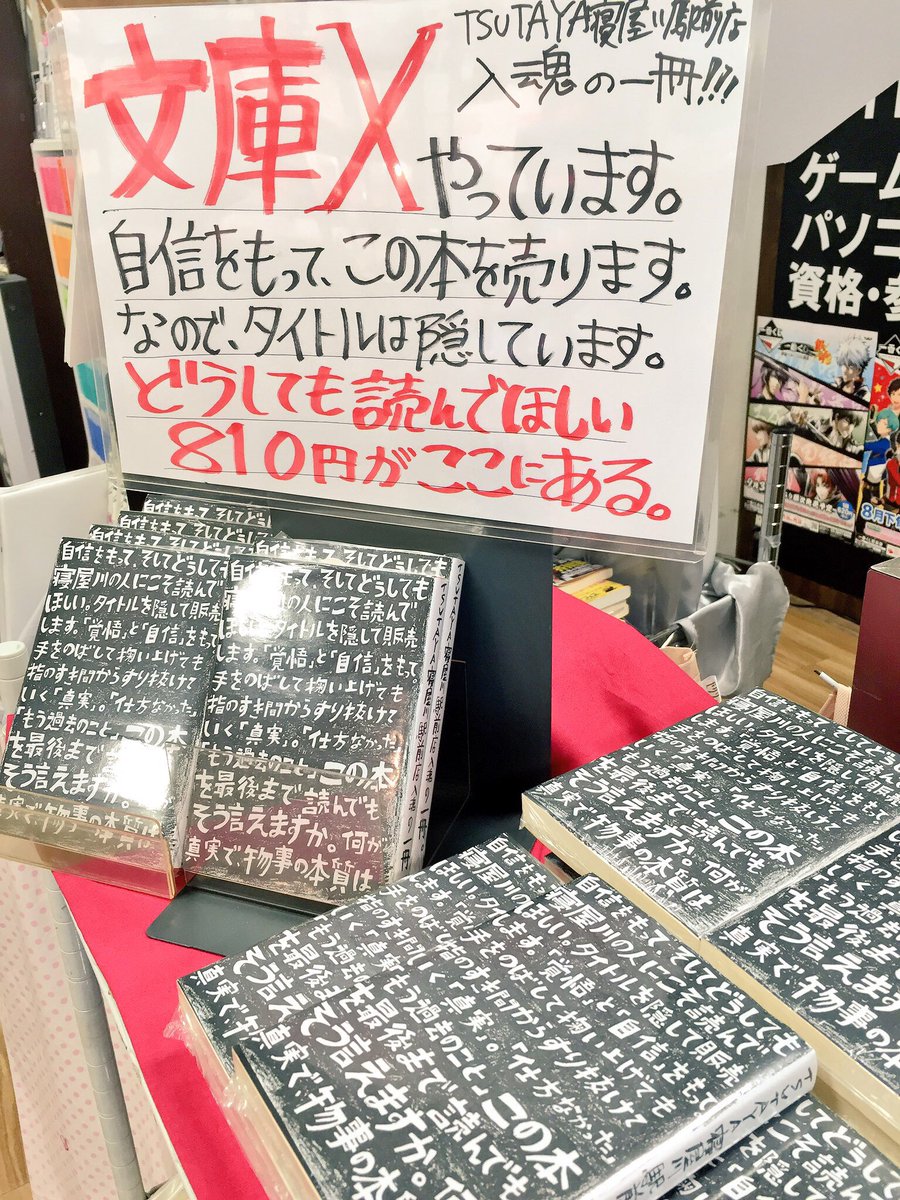 文庫X
TSUTAYA寝屋川駅前店
入魂の一冊!!!
やっています。
自信をもって、この本を売ります。
なので、タイトルは隠しています。
どうしても読んでほしい
810円がここにある。
ゲーム
パソコ
資格・
自信をもって、そしてどうしても
寝屋川の人にこそ読んで
ほしい。タイトルを隠して販売
します。「覚悟」と「自信」をもって
手をのばして掬い上げても
指のすき間からすり抜けて
いく「真実」。「仕方なかった」
「もう過去のこと」この本
を最後まで読んでも
そう言えますか。何が
真実で物事の本質は
TSUTAYA 寝屋川駅前店 入魂の一冊。